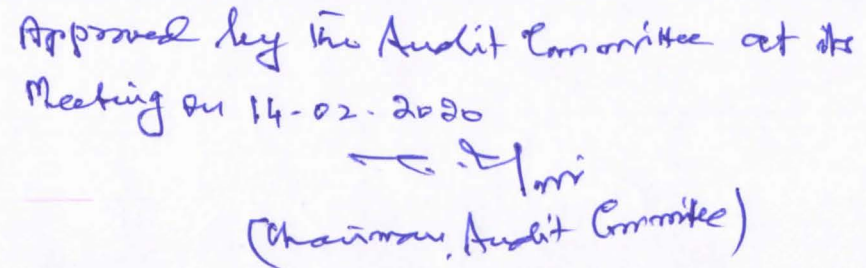 Approved by the Audit Committee at its
Meeting on 14-02-2020
(Chairman, Audit Committee)